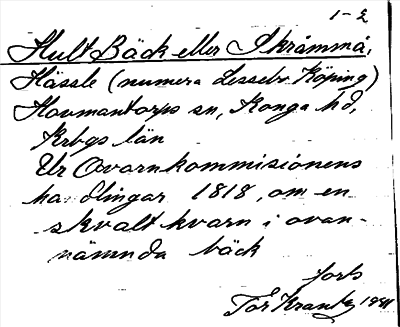 1-2
Hult Bäck eller Skråmmå,
Hässle (numera Lessebo Köping)
Hovmantorps sn, Konga hd,
Krbgs län
Ur Qvarnkommisionens
handlingar 1818, om en
skvaltkvarn i ovan-
nämnda bäck
forts
Tor Krantz